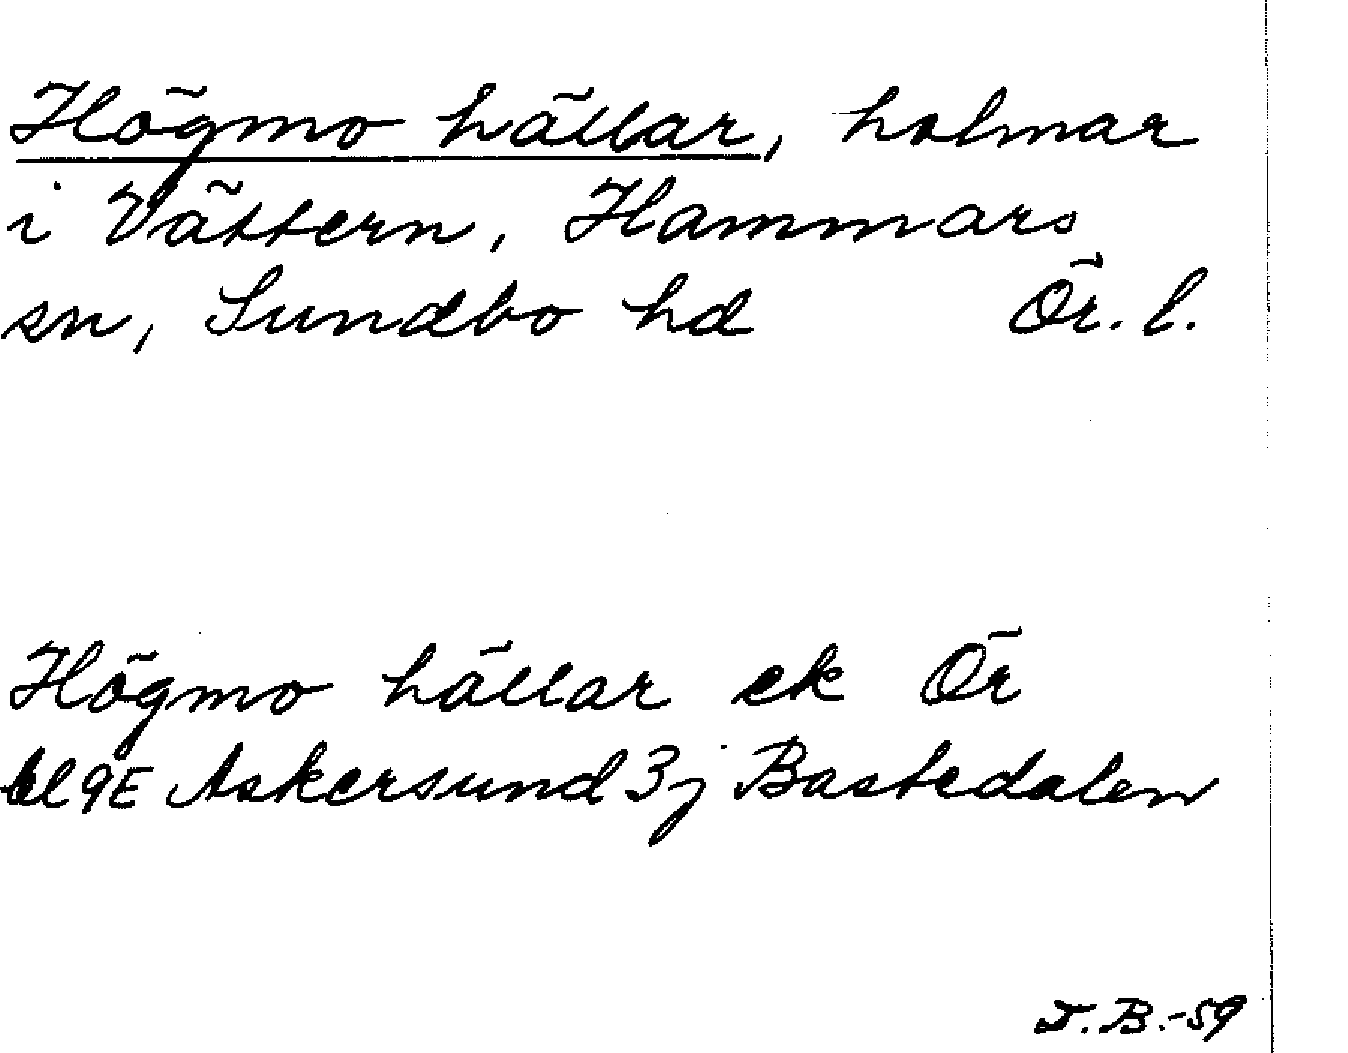 Högmo hällar, holmar
i Vättern, Hammars
sn, Sundbo hd Ör. l.
Högmo hällar ek Ör
bl 9E Askersund 3j Bastedalen
T.B.-59